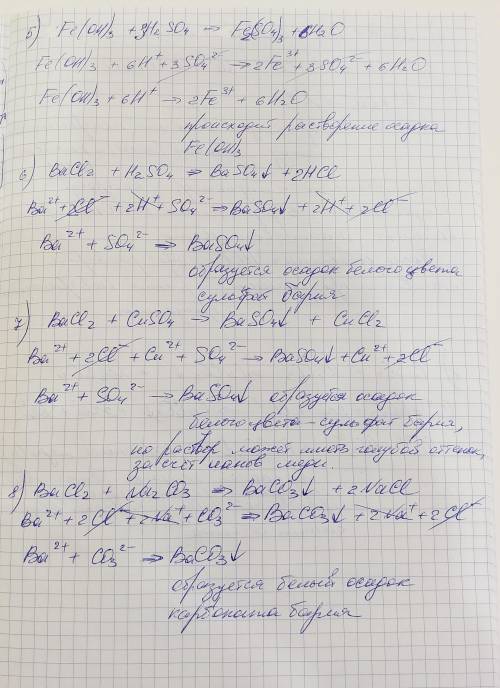 5) Fe(OH)3 + 3H2SO4 → Fe2(SO4)3 + 6H2O
Fe(OH)3 + 6H⁺ + 3SO4²⁻ → 2Fe³⁺ + 3SO4²⁻ + 6H2O
Fe(OH)3 + 6H⁺ → 2Fe³⁺ + 6H2O
происходит растворение осадка
Fe(OH)3
6) BaCl2 + H2SO4 ⇒ BaSO4↓ + 2HCl
Ba²⁺ + 2Cl⁻ + 2H⁺ + SO4²⁻ → BaSO4↓ + 2H⁺ + 2Cl⁻
Ba²⁺ + SO4²⁻ ⇒ BaSO4↓
образуется осадок белого цвета
сульфат бария
7) BaCl2 + CuSO4 → BaSO4↓ + CuCl2
Ba²⁺ + 2Cl⁻ + Cu²⁺ + SO4²⁻ → BaSO4↓ + Cu²⁺ + 2Cl⁻
Ba²⁺ + SO4²⁻ → BaSO4↓ образуется осадок
белого цвета - сульфат бария,
но раствор может иметь голубой оттенок,
за счёт ионов меди.
8) BaCl2 + Na2CO3 ⇒ BaCO3↓ + 2NaCl
Ba²⁺ + 2Cl⁻ + 2Na⁺ + CO3²⁻ ⇒ BaCO3↓ + 2Na⁺ + 2Cl⁻
Ba²⁺ + CO3²⁻ ⇒ BaCO3↓
образуется белый осадок
карбоната бария